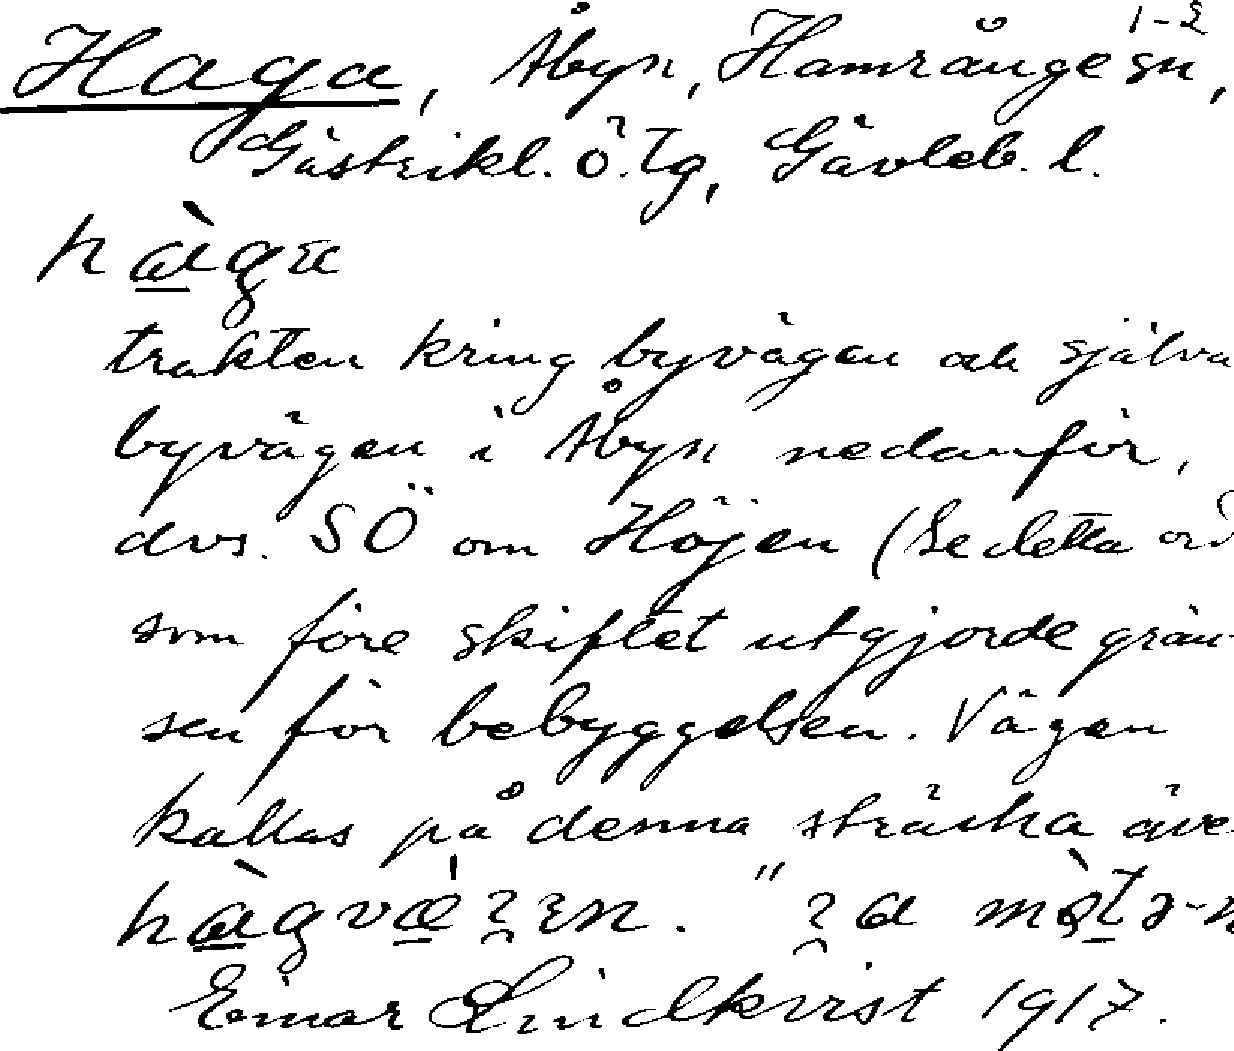 Haga, Åbyn, Hamrånge sn, 1-2
Gästrikl. ö. tg, Gävleb. l.
trakten kring byvägen och själva
byvägen i Åbyn nedanför,
dvs. SÖ om Höjen (se detta
som före skiftet utgjorde grän-
sen för bebyggelsen. Vägen
kallas på denna sträcka äve
Einar Lindkvist 1917.